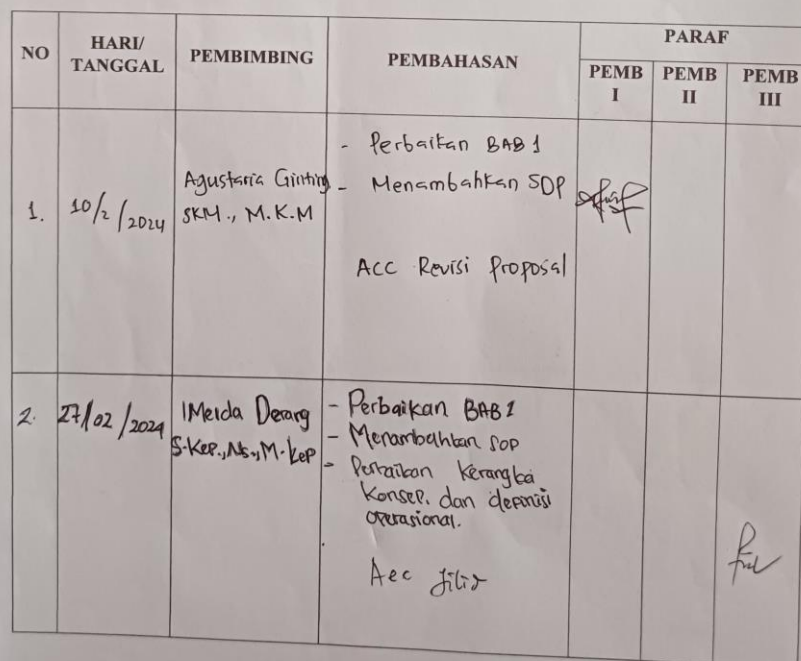 NO
HARI/
TANGGAL
PEMBIMBING
PEMBAHASAN
PARAF
PEMB
I
PEMB
II
PEMB
III
1.
10/2/2024
Agustaria Ginting
SKM., M.K.M
- Perbaikan BAB 1
- Menambahkan SOP
ACC Revisi Proposal
2.
27/02/2024
Imelda Derang
S.Kep., Ns., M.Kep
- Perbaikan BAB 1
- Menambahkan SOP
- Perbaikan Kerangka
Konsep. dan definisi
operasional.
Acc Jilid